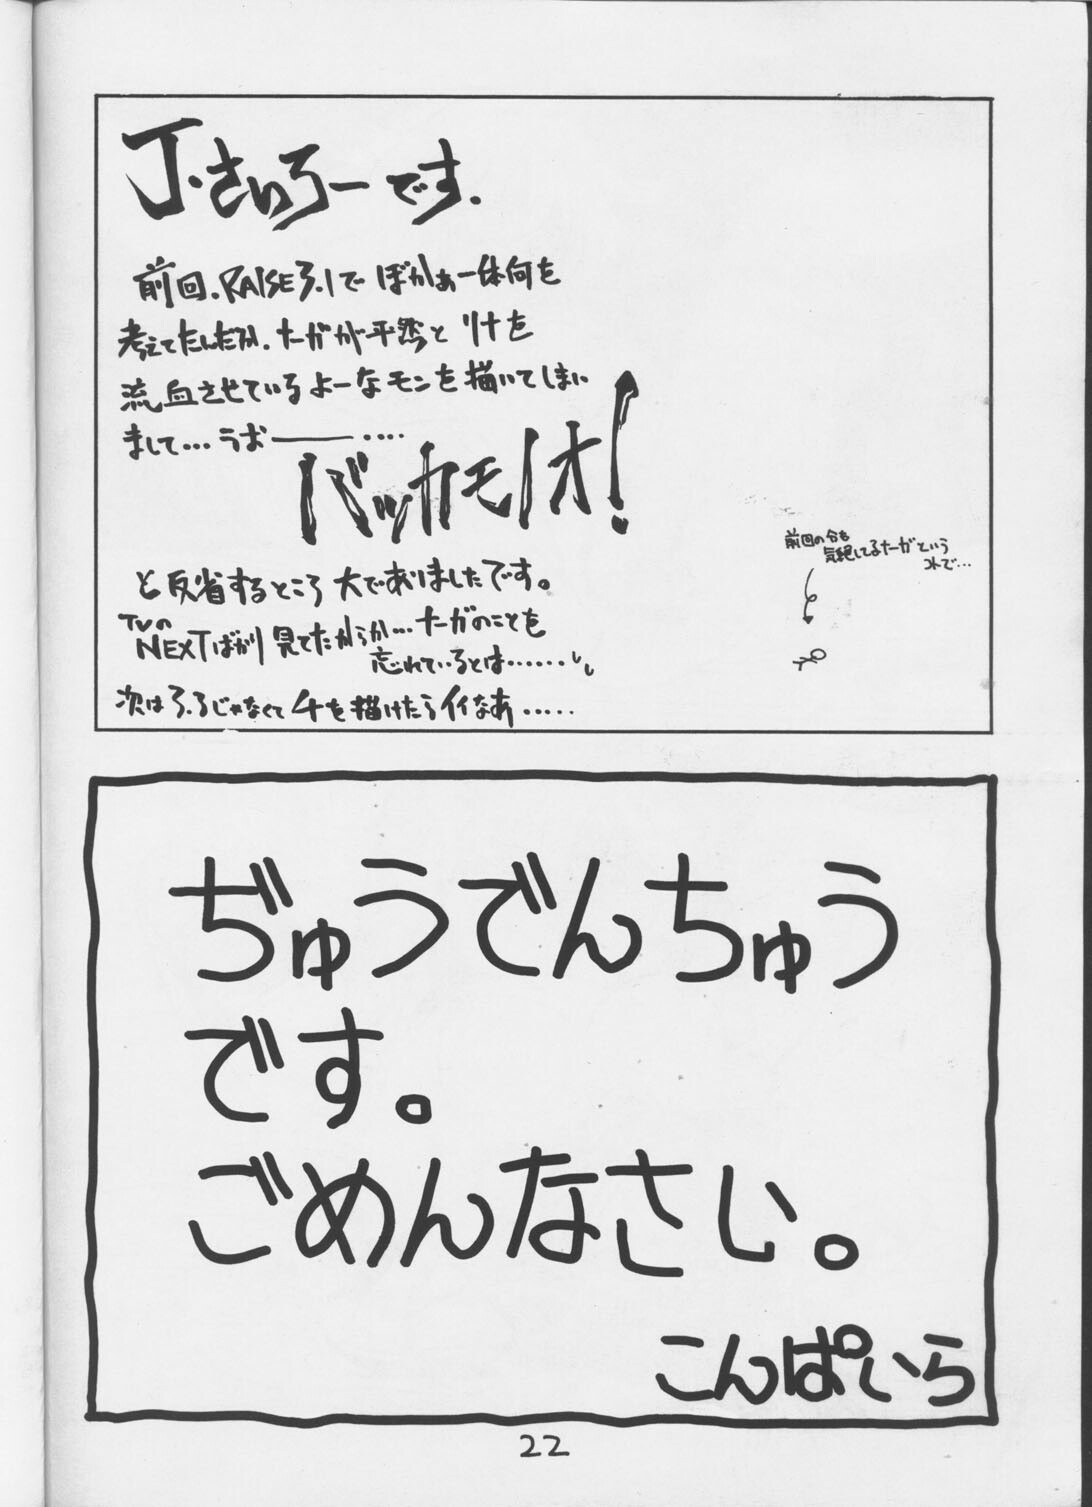 J・さいろーです.
前回.RAISE3.1でぼかぁ一体何を
考えてたんだか.ナーガが平然とリナを
流血させているよーなモンを描いてしまい
まして…うおーーー‥‥
バッカモノオ!
と反省するところ大でありましたです。
TVの
NEXTばかり見てたからか…ナーガのことを
忘れているとは……
次はろ.ろじゃなくて4を描けたらイイなあ……
前回の分も
気絶してるナーガという
コトで…
ぢゅうでんちゅう
です。
ごめんなさい。
こんぱいら
22